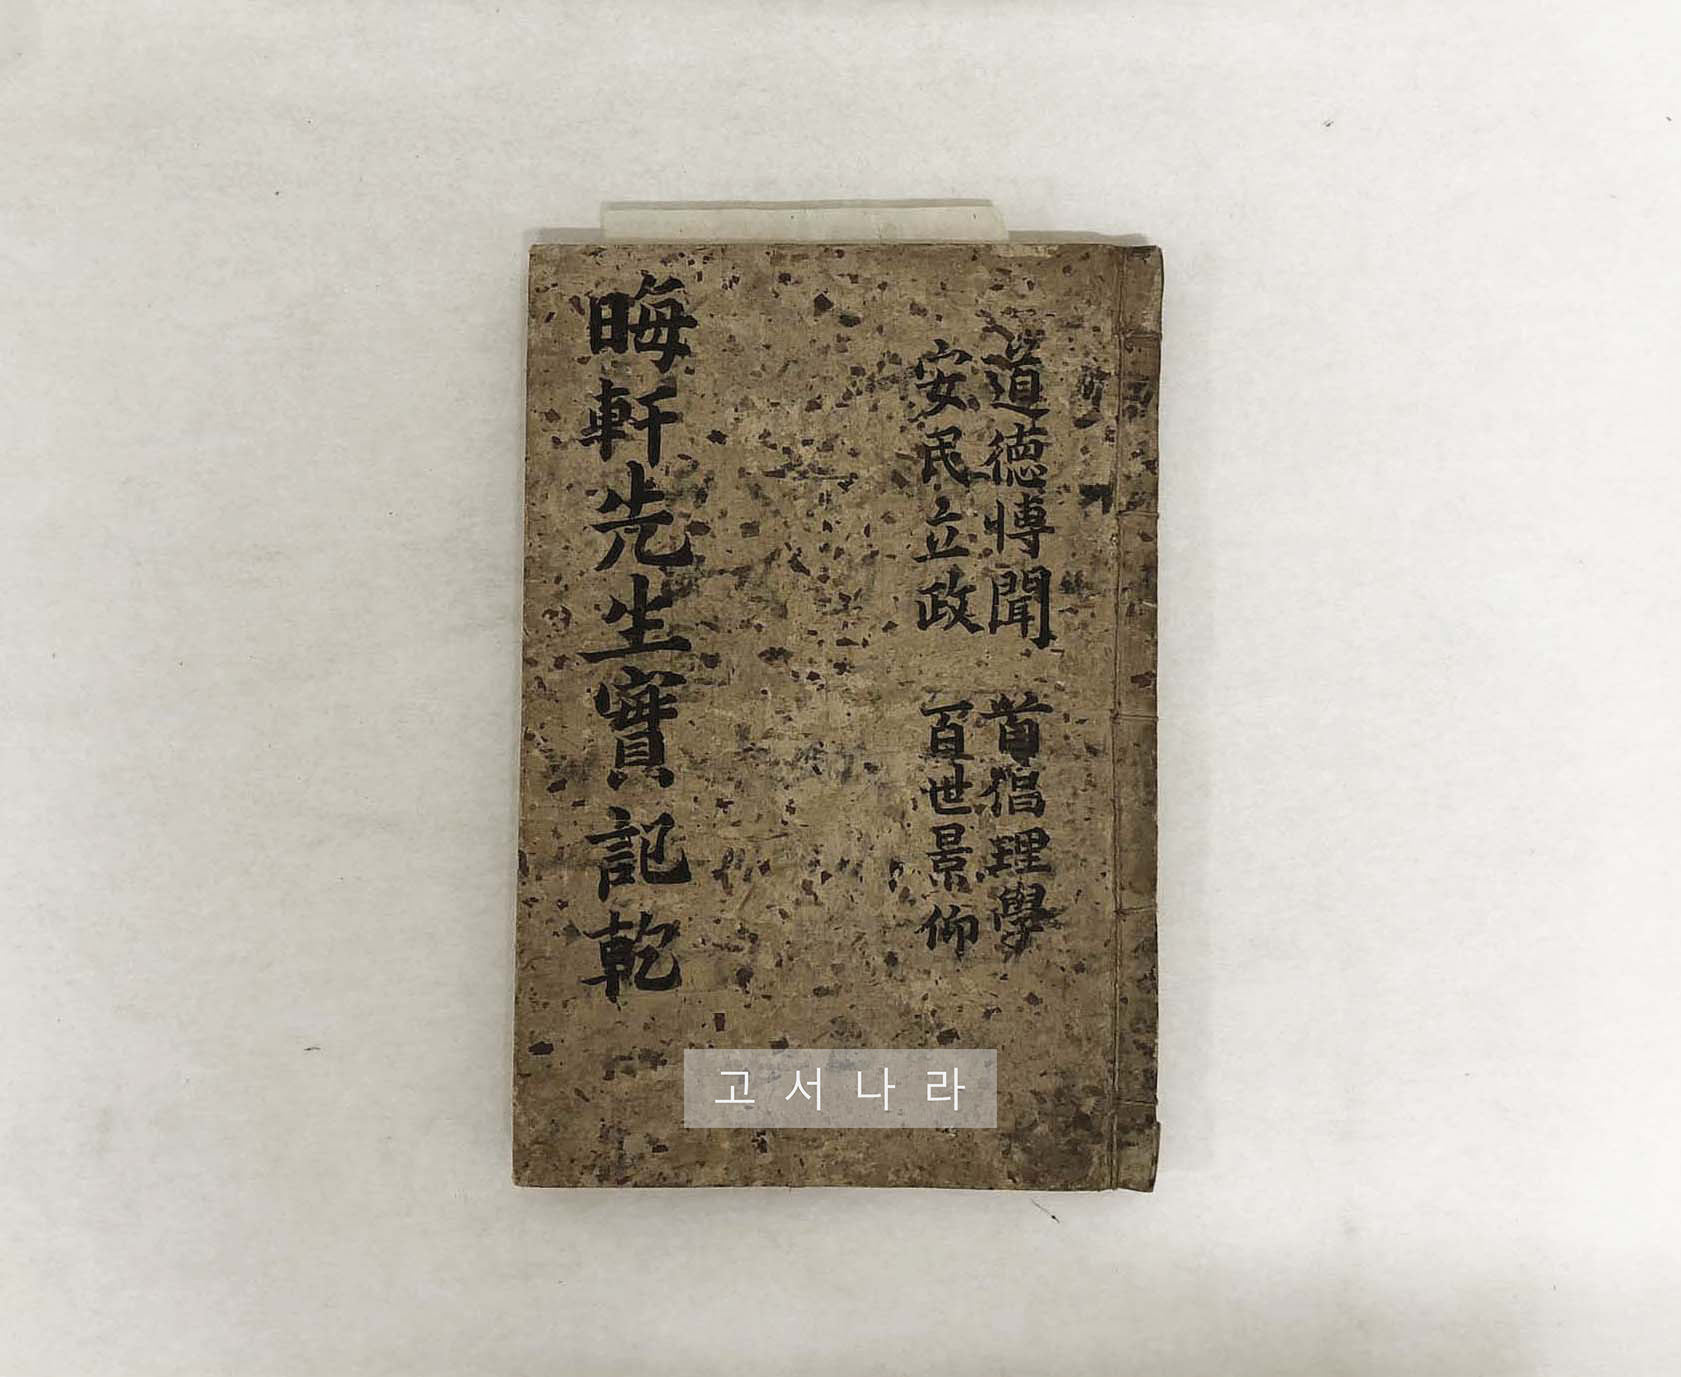 道德博聞 首倡理學
安民立政 百世景仰
晦軒先生實記乾
고서나라